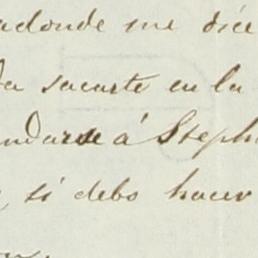 adonde me dice
da sacarte en la
andarse á Steph
, si debo hacer